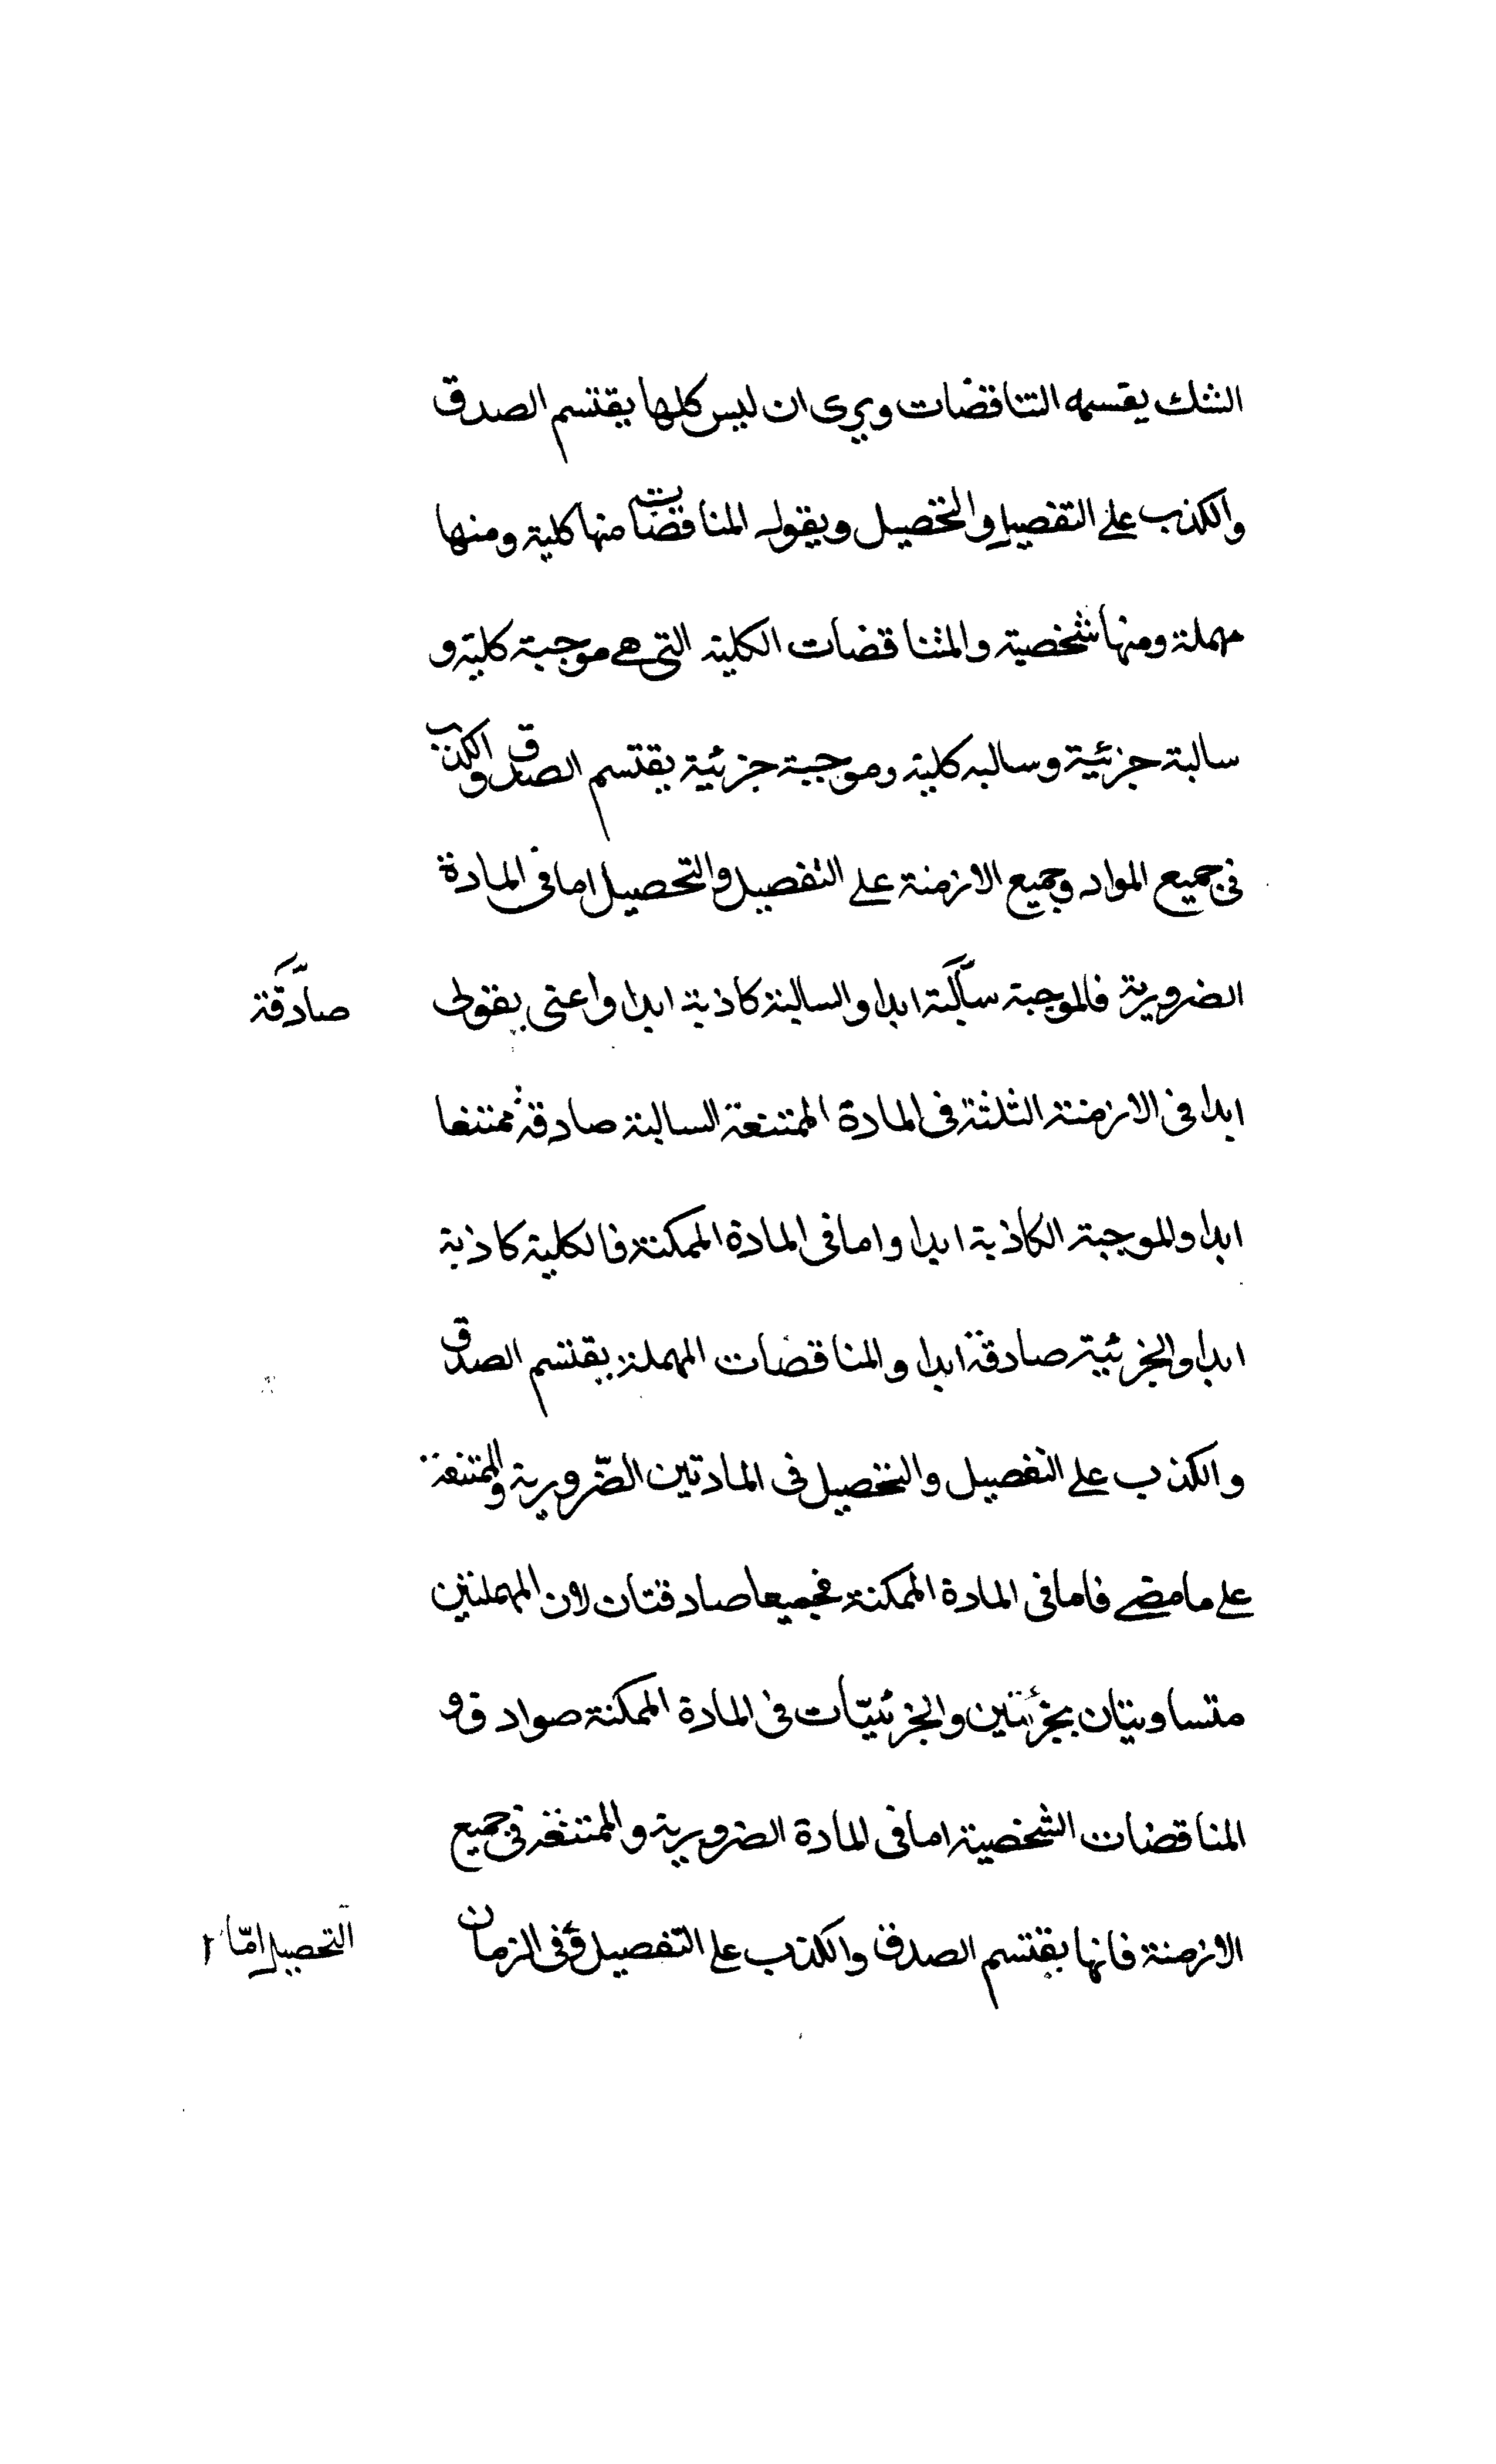 الشك يقسمه التناقضات ويرى ان ليس كلها يقتسم الصدق
والكذب على التفصيل والتخصيل ويقول المناقضات منها كلية ومنها
مهملة ومنها شخصية والمتناقضات الكلية التى هى موجبة كلية و
سالبة جزئية وسالبه كلية وموجبة جزئية يقتسم الصدق والكذب
فى جميع المواد وجميع الازمنة على التفصيل والتحصيل اما فى المادة
الضرورية فالموجبة ساكتة ابدا والسالبة كاذبة ابدا واعنى بقولى
صادقة
ابدا فى الازمنة الثلثة فى المادة الممتنعة السالبة صادقة ممتنعا
ابدا والموجبة الكاذبة ابدا واما فى المادة الممكنة فالكلية كاذبة
ابدا والجزئية صادقة ابدا والمناقضات المهملة يقتسم الصدق
والكذب على التفصيل والتخصيل فى المادتين الضّرورية والممتنعة
على ما مضى فاما فى المادة الممكنة فجميعا صادقتان لان المهملتين
متساويتان بجزئتين والجزئيّات فى المادة الممكنة صوادق و
المناقضات الشخصية اما فى المادة الضرورية والممتنعة فى جميع
الازمنة فانها يقتسم الصدق والكذب على التّفصيل وفى الزمان
التحصيل امّا